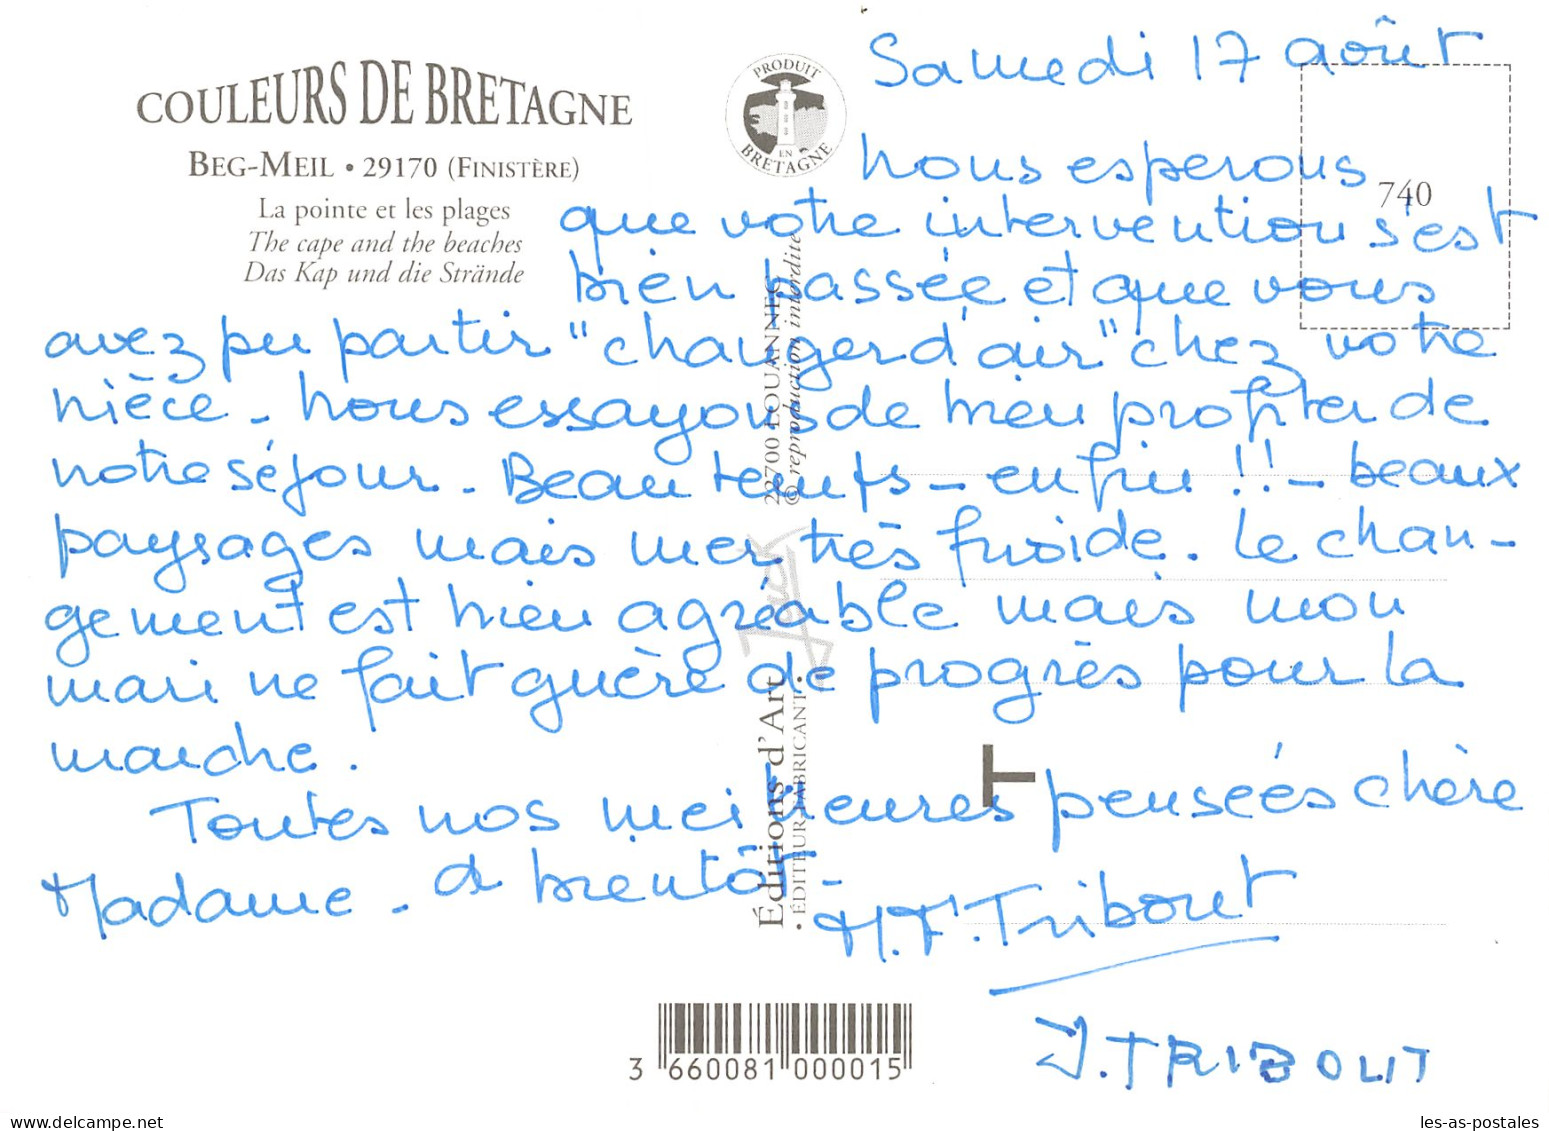 COULEURS DE BRETAGNE
BEG-MEIL • 29170 (FINISTÈRE)
La pointe et les plages
The cape and the beaches
Das Kap und die Strände
PRODUIT
EN
BRETAGNE
740
Samedi 17 août
Nous esperons
que votre intervention s'est
bien passée et que vous
avez pu partir "changer d'air" chez votre
nièce - Nous essayons de bien profiter de
notre séjour - Beau temps - enfin !! - beaux
paysages mais mer très froide. Le chan-
gement est bien agréable mais mon
mari ne fait guère de progrès pour la
marche.
Toutes nos meilleures pensées chère
Madame - à bientôt -
M.F. Tribout
J. TRIBOUT
Éditions d'Art
• ÉDITEUR FABRICANT •
Jack
22700 LOUANNEC
© reproduction interdite
3 660081 000015
delcampe.net
les-as-postales